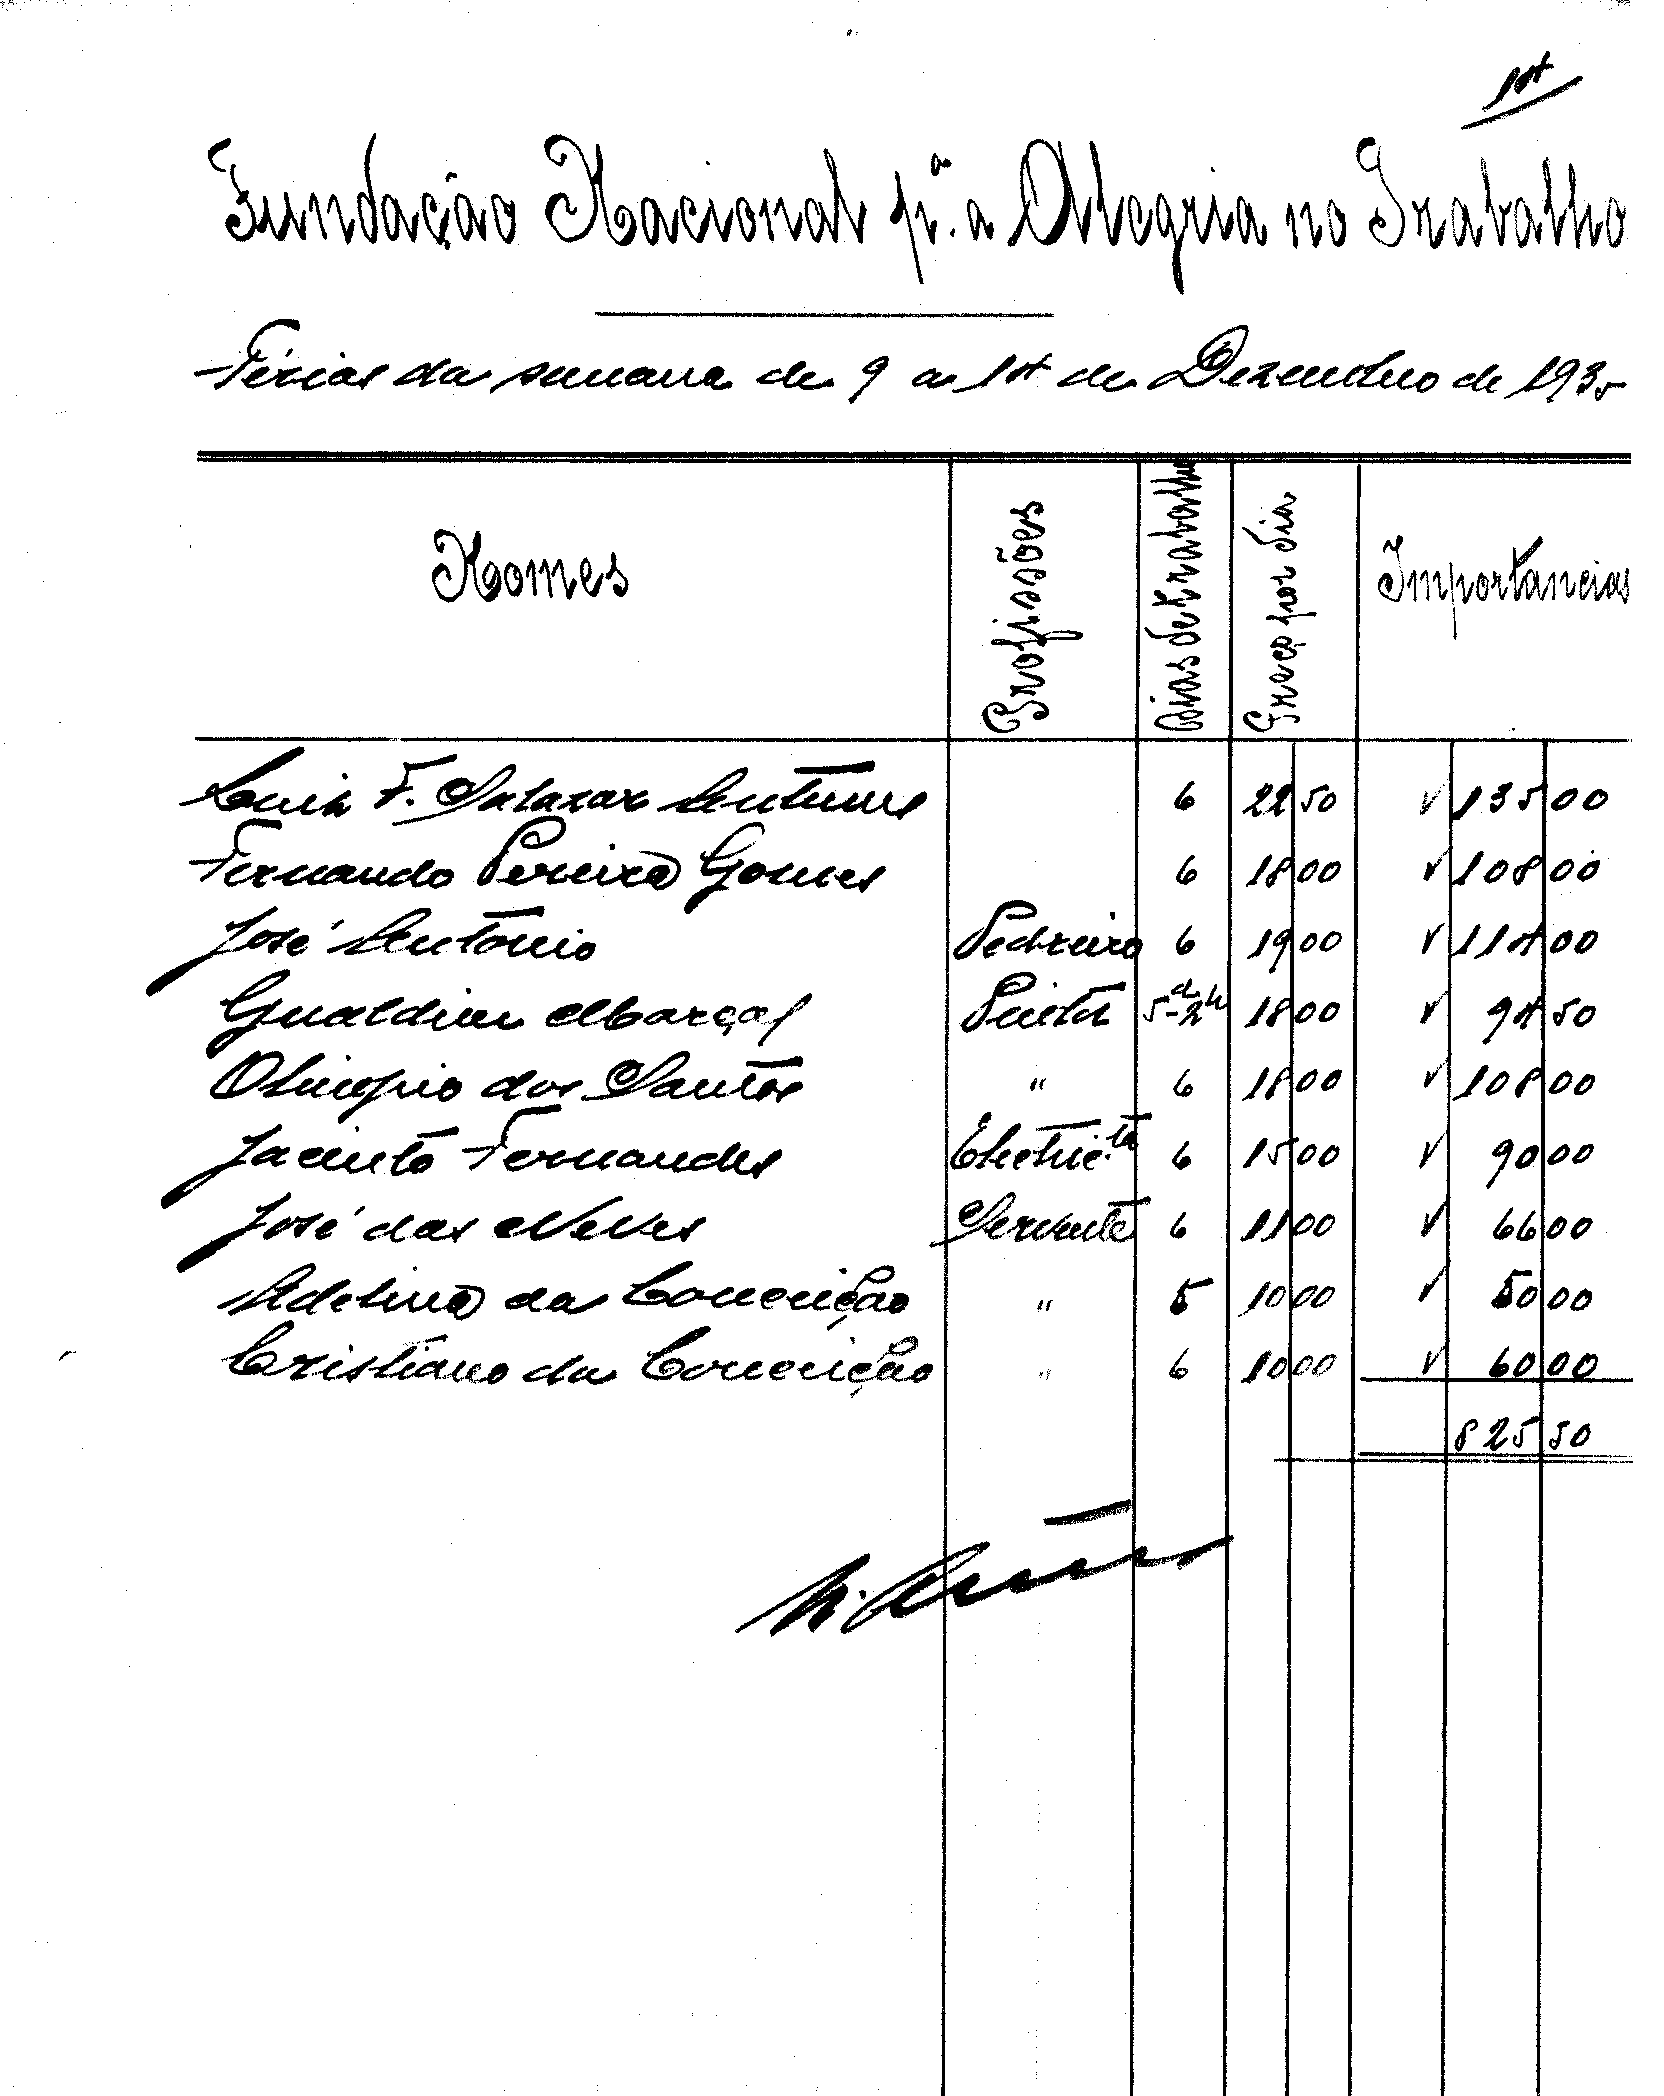 14
Fundação Nacional p.ª a Alegria no Trabalho
Férias da semana de 9 a 14 de Dezembro de 1935
Nomes Profissões Dias de trabalho Preço por dia Importancias
Luiz F. Salazar Antunes 6 22 50 ✓ 135 00
Fernando Pereira Gomes 6 18 00 ✓ 108 00
José António Pedreiro 6 19 00 ✓ 114 00
Gualdim Marçal Pintor 5d-2h 18 00 ✓ 94 50
Olimpio dos Santos " 6 18 00 ✓ 108 00
Jacinto Fernandes Electric.ta 6 15 00 ✓ 90 00
José das Neves Servente 6 11 00 ✓ 66 00
Adelina da Conceição " 5 10 00 ✓ 50 00
Cristiano da Conceição " 6 10 00 ✓ 60 00
825 50